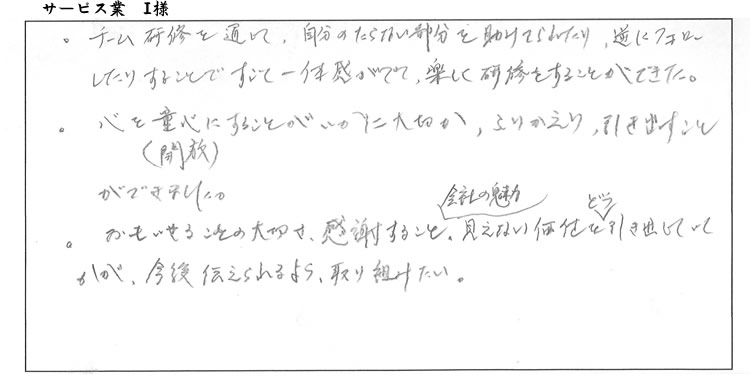 サービス業 I様
。チーム研修を通して、自分のたらない部分を助けてもらえたり、逆にフォロー
したりすることですごく一体感がでて、楽しく研修をすることができた。
。心を童心にすることがいかに大切か、ふりかえり、引き出すこと
(開放)
ができました。
会社の魅力 どう
。おもいやることの大切さ、感謝すること、見えない価値を引き出していく
かが、今後伝えられるよう、取り組みたい。